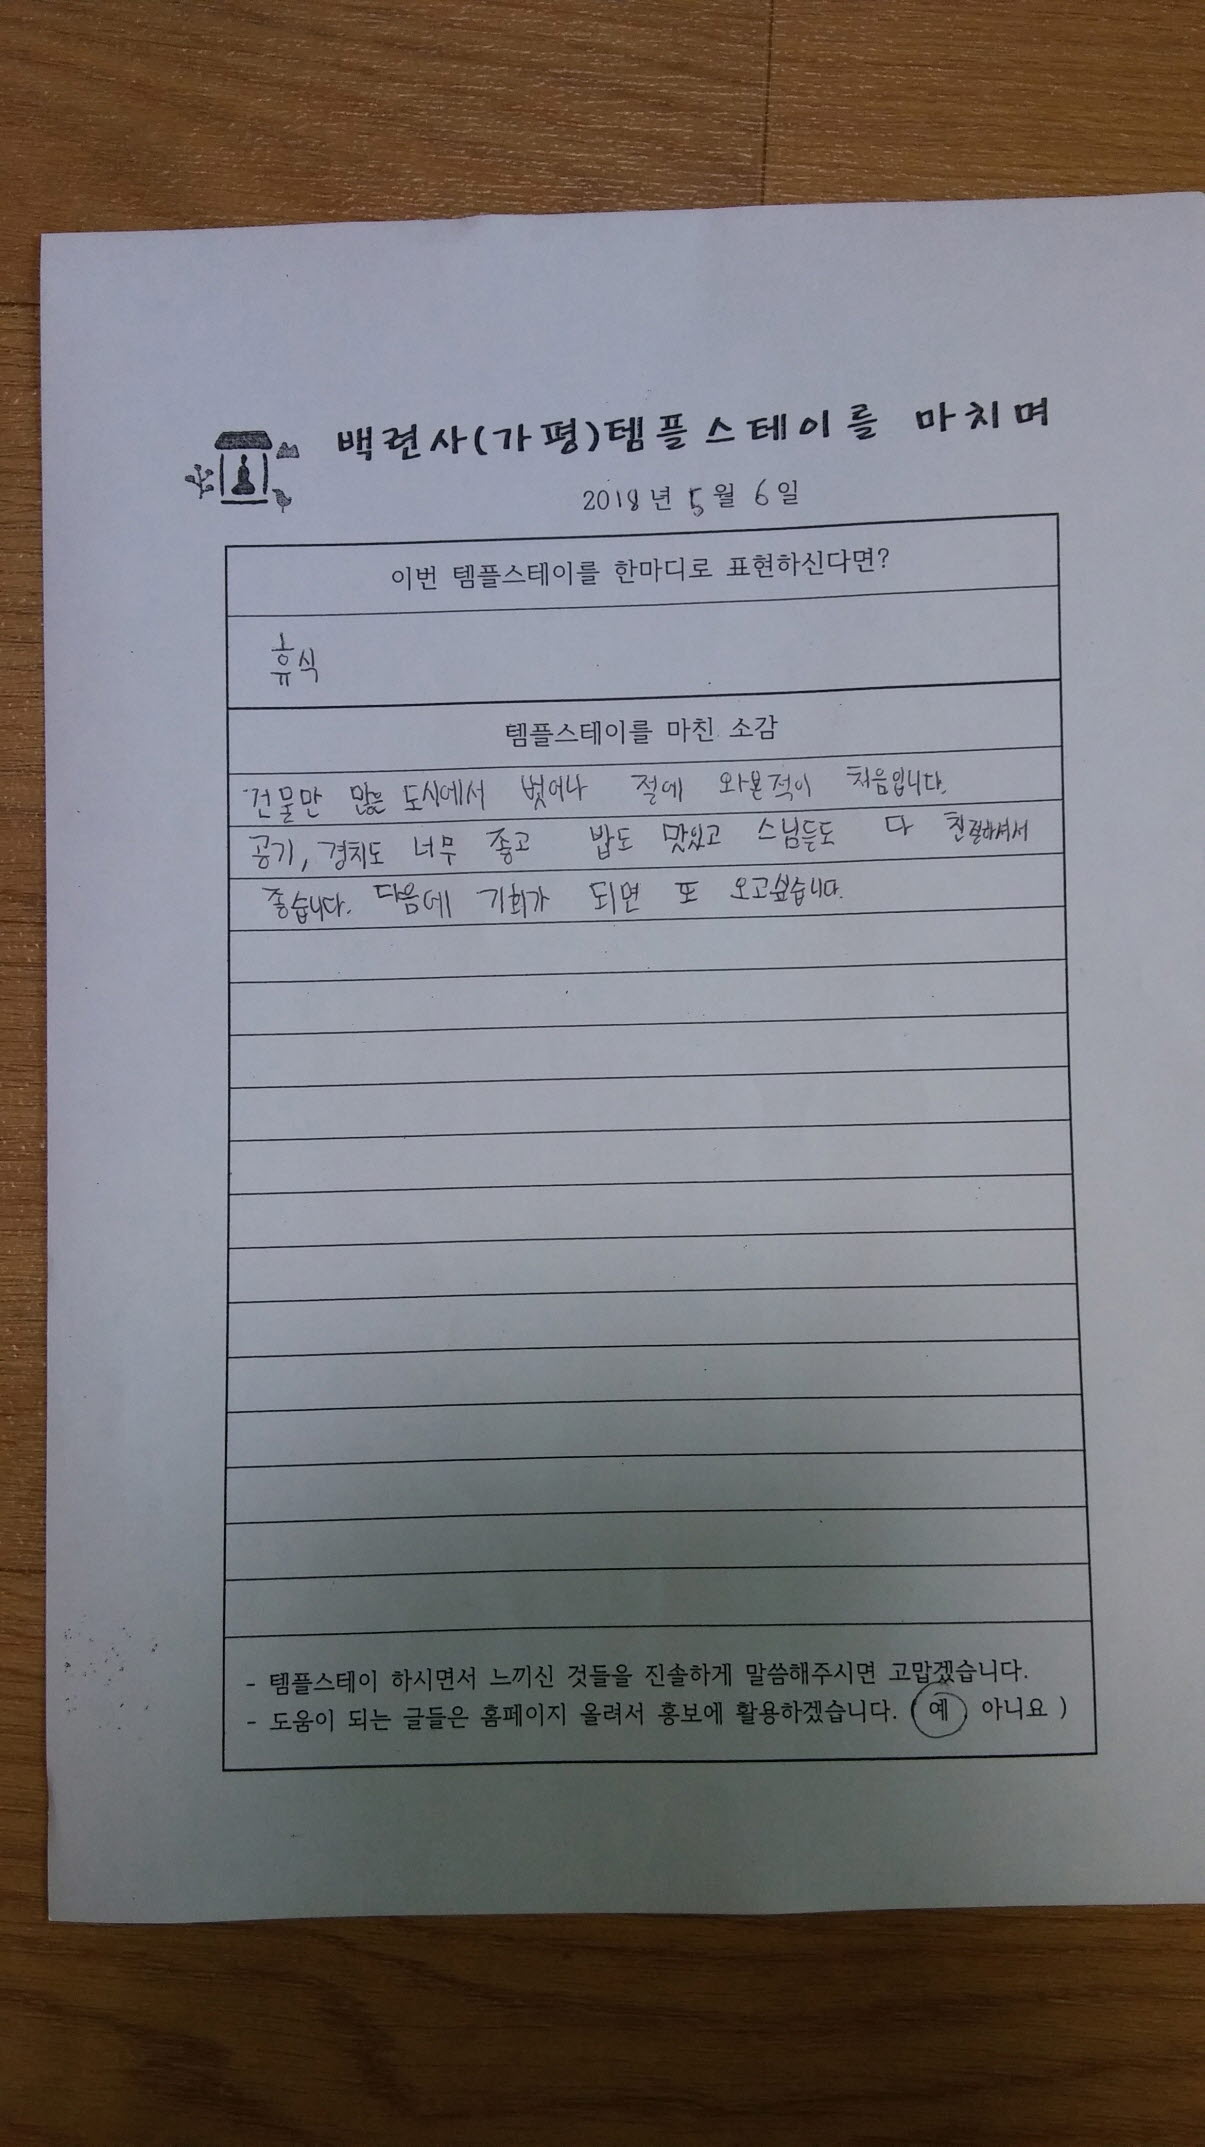 백련사(가평)템플스테이를 마치며
2018년 5월 6일
이번 템플스테이를 한마디로 표현하신다면?
휴식
템플스테이를 마친 소감
건물만 많은 도시에서 벗어나 절에 와본적이 처음입니다.
공기, 경치도 너무 좋고 밥도 맛있고 스님들도 다 친절하셔서
좋습니다. 다음에 기회가 되면 또 오고싶습니다.
- 템플스테이 하시면서 느끼신 것들을 진솔하게 말씀해주시면 고맙겠습니다.
- 도움이 되는 글들은 홈페이지 올려서 홍보에 활용하겠습니다. ( 예 아니요 )